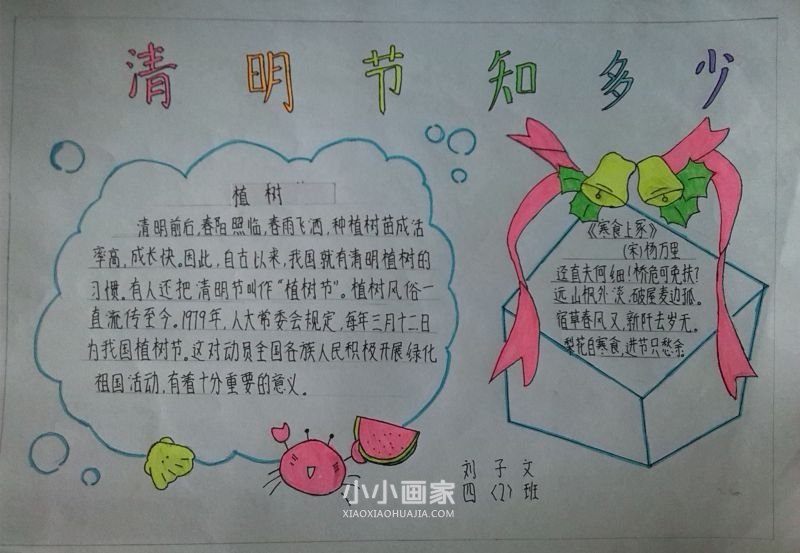 清明节知多少
植树
清明前后,春阳照临,春雨飞洒,种植树苗成活
率高,成长快。因此,自古以来,我国就有清明植树的
习惯。有人还把清明节叫作“植树节”。植树风俗一
直流传至今。1979年,人大常委会规定,每年三月十二日
为我国植树节。这对动员全国各族人民积极开展绿化
祖国活动,有着十分重要的意义。
《寒食上冢》
(宋)杨万里
迳直夫何细!桥危可免扶?
远山枫外淡,破屋麦边孤。
宿草春风又,新阡去岁无。
梨花自寒食,进节只愁余
刘子文
四〈2〉班
小小画家
XIAOXIAOHUAJIA.COM